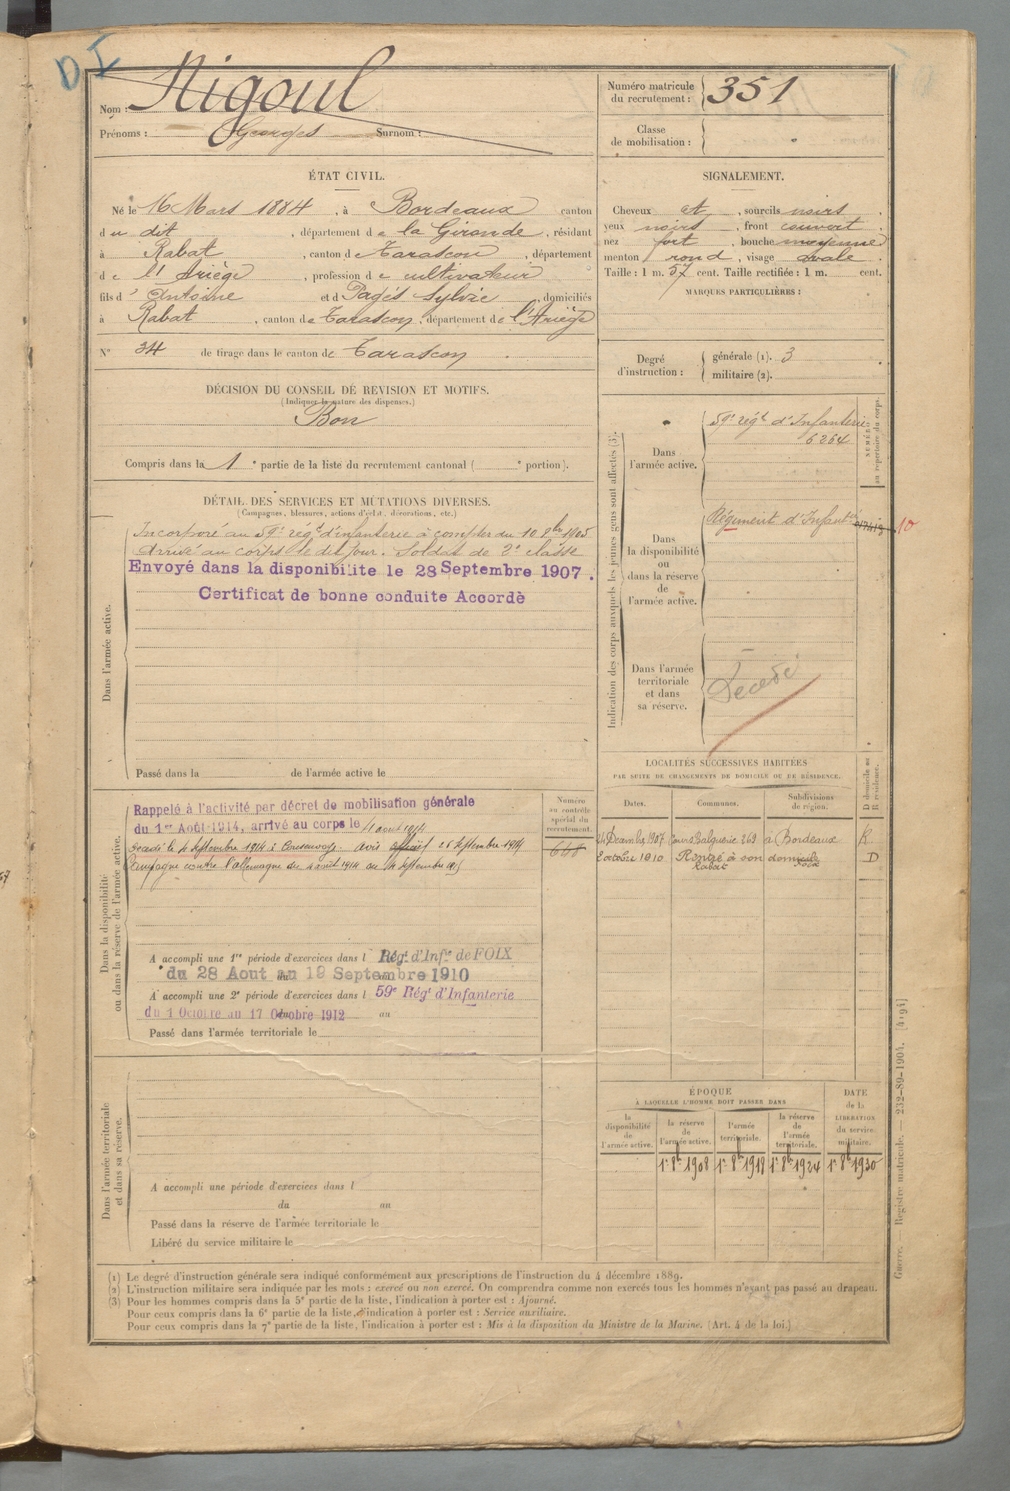 D I
Nom : Nigoul
Prénoms : Georges Surnom :
Numéro matricule du recrutement : 351
Classe de mobilisation :
ÉTAT CIVIL.
Né le 16 Mars 1884, à Bordeaux canton
du dit, département de la Gironde, résidant
à Rabat, canton de Tarascon, département
de l'Ariège, profession de cultivateur
fils d'Antoine et de Pagés Sylvie, domiciliés
à Rabat, canton de Tarascon, département de l'Ariège
N° 34 de tirage dans le canton de Tarascon.
SIGNALEMENT.
Cheveux et, sourcils noirs,
yeux noirs, front couvert,
nez fort, bouche moyenne
menton rond, visage ovale.
Taille : 1 m. 57 cent. Taille rectifiée : 1 m. cent.
MARQUES PARTICULIÈRES :
Degré d'instruction : générale (1). 3
militaire (2).
DÉCISION DU CONSEIL DE REVISION ET MOTIFS.
(Indiquer la nature des dispenses.)
Bon
Compris dans la 1e partie de la liste du recrutement cantonal ( e portion).
DÉTAIL DES SERVICES ET MUTATIONS DIVERSES.
(Campagnes, blessures, actions d'éclat, décorations, etc.)
Dans l'armée active.
Incorporé au 59e régt d'infanterie à compter du 10 8bre 1905
Arrivé au corps le dit jour. Soldat de 2e classe
Envoyé dans la disponibilite le 28 Septembre 1907.
Certificat de bonne conduite Accordè
Passé dans la de l'armée active le
Indication des corps auxquels les jeunes gens sont affectés (3).
NUMÉRO au répertoire du corps.
Dans l'armée active.
59e régt d'Infanterie
6264
Dans la disponibilité ou dans la réserve de l'armée active.
Régiment d'Infanterie
10
Dans l'armée territoriale et dans sa réserve.
Décédé
Dans la disponibilité ou dans la réserve de l'armée active.
Numéro au contrôle spécial du recrutement.
Rappelé à l'activité par décret de mobilisation générale
du 1er Août 1914, arrivé au corps le 4 aout 1914
le 4 Septembre 1914 à avis officiel 26 Septembre 1914
Campagne contre l'allemagne du 4 aout 1914 au Septembre
648
A accompli une 1re période d'exercices dans l Régt d'Infie de FOIX
du 28 Aout au 19 Septembre 1910
A accompli une 2e période d'exercices dans l 59e Régt d'Infanterie
du 1 Octobre au 17 Octobre 1912 au
Passé dans l'armée territoriale le
LOCALITÉS SUCCESSIVES HABITÉES
PAR SUITE DE CHANGEMENTS DE DOMICILE OU DE RÉSIDENCE.
Dates. Communes. Subdivisions de région. D domicile ou R résidence.
24 Décembre 1907 Cours Balguerie 269 à Bordeaux R
Octobre 1910 Rentré à son domicile D
Rabat Foix
Dans l'armée territoriale et dans sa réserve.
A accompli une période d'exercices dans l
du au
Passé dans la réserve de l'armée territoriale le
Libéré du service militaire le
ÉPOQUE
À LAQUELLE L'HOMME DOIT PASSER DANS
la disponibilité de l'armée active.
la réserve de l'armée active.
l'armée territoriale.
la réserve de l'armée territoriale.
DATE de la LIBÉRATION du service militaire.
1er 8bre 1908 1er 8bre 1918 1er 8bre 1924 1er 8bre 1930
(1) Le degré d'instruction générale sera indiqué conformément aux prescriptions de l'instruction du 4 décembre 1889.
(2) L'instruction militaire sera indiquée par les mots : exercé ou non exercé. On comprendra comme non exercés tous les hommes n'ayant pas passé au drapeau.
(3) Pour les hommes compris dans la 5e partie de la liste, l'indication à porter est : Ajourné.
Pour ceux compris dans la 6e partie de la liste, l'indication à porter est : Service auxiliaire.
Pour ceux compris dans la 7e partie de la liste, l'indication à porter est : Mis à la disposition du Ministre de la Marine. (Art. 4 de la loi.)
Guerre. — Registre matricule. — 232-89-1904. [4194]